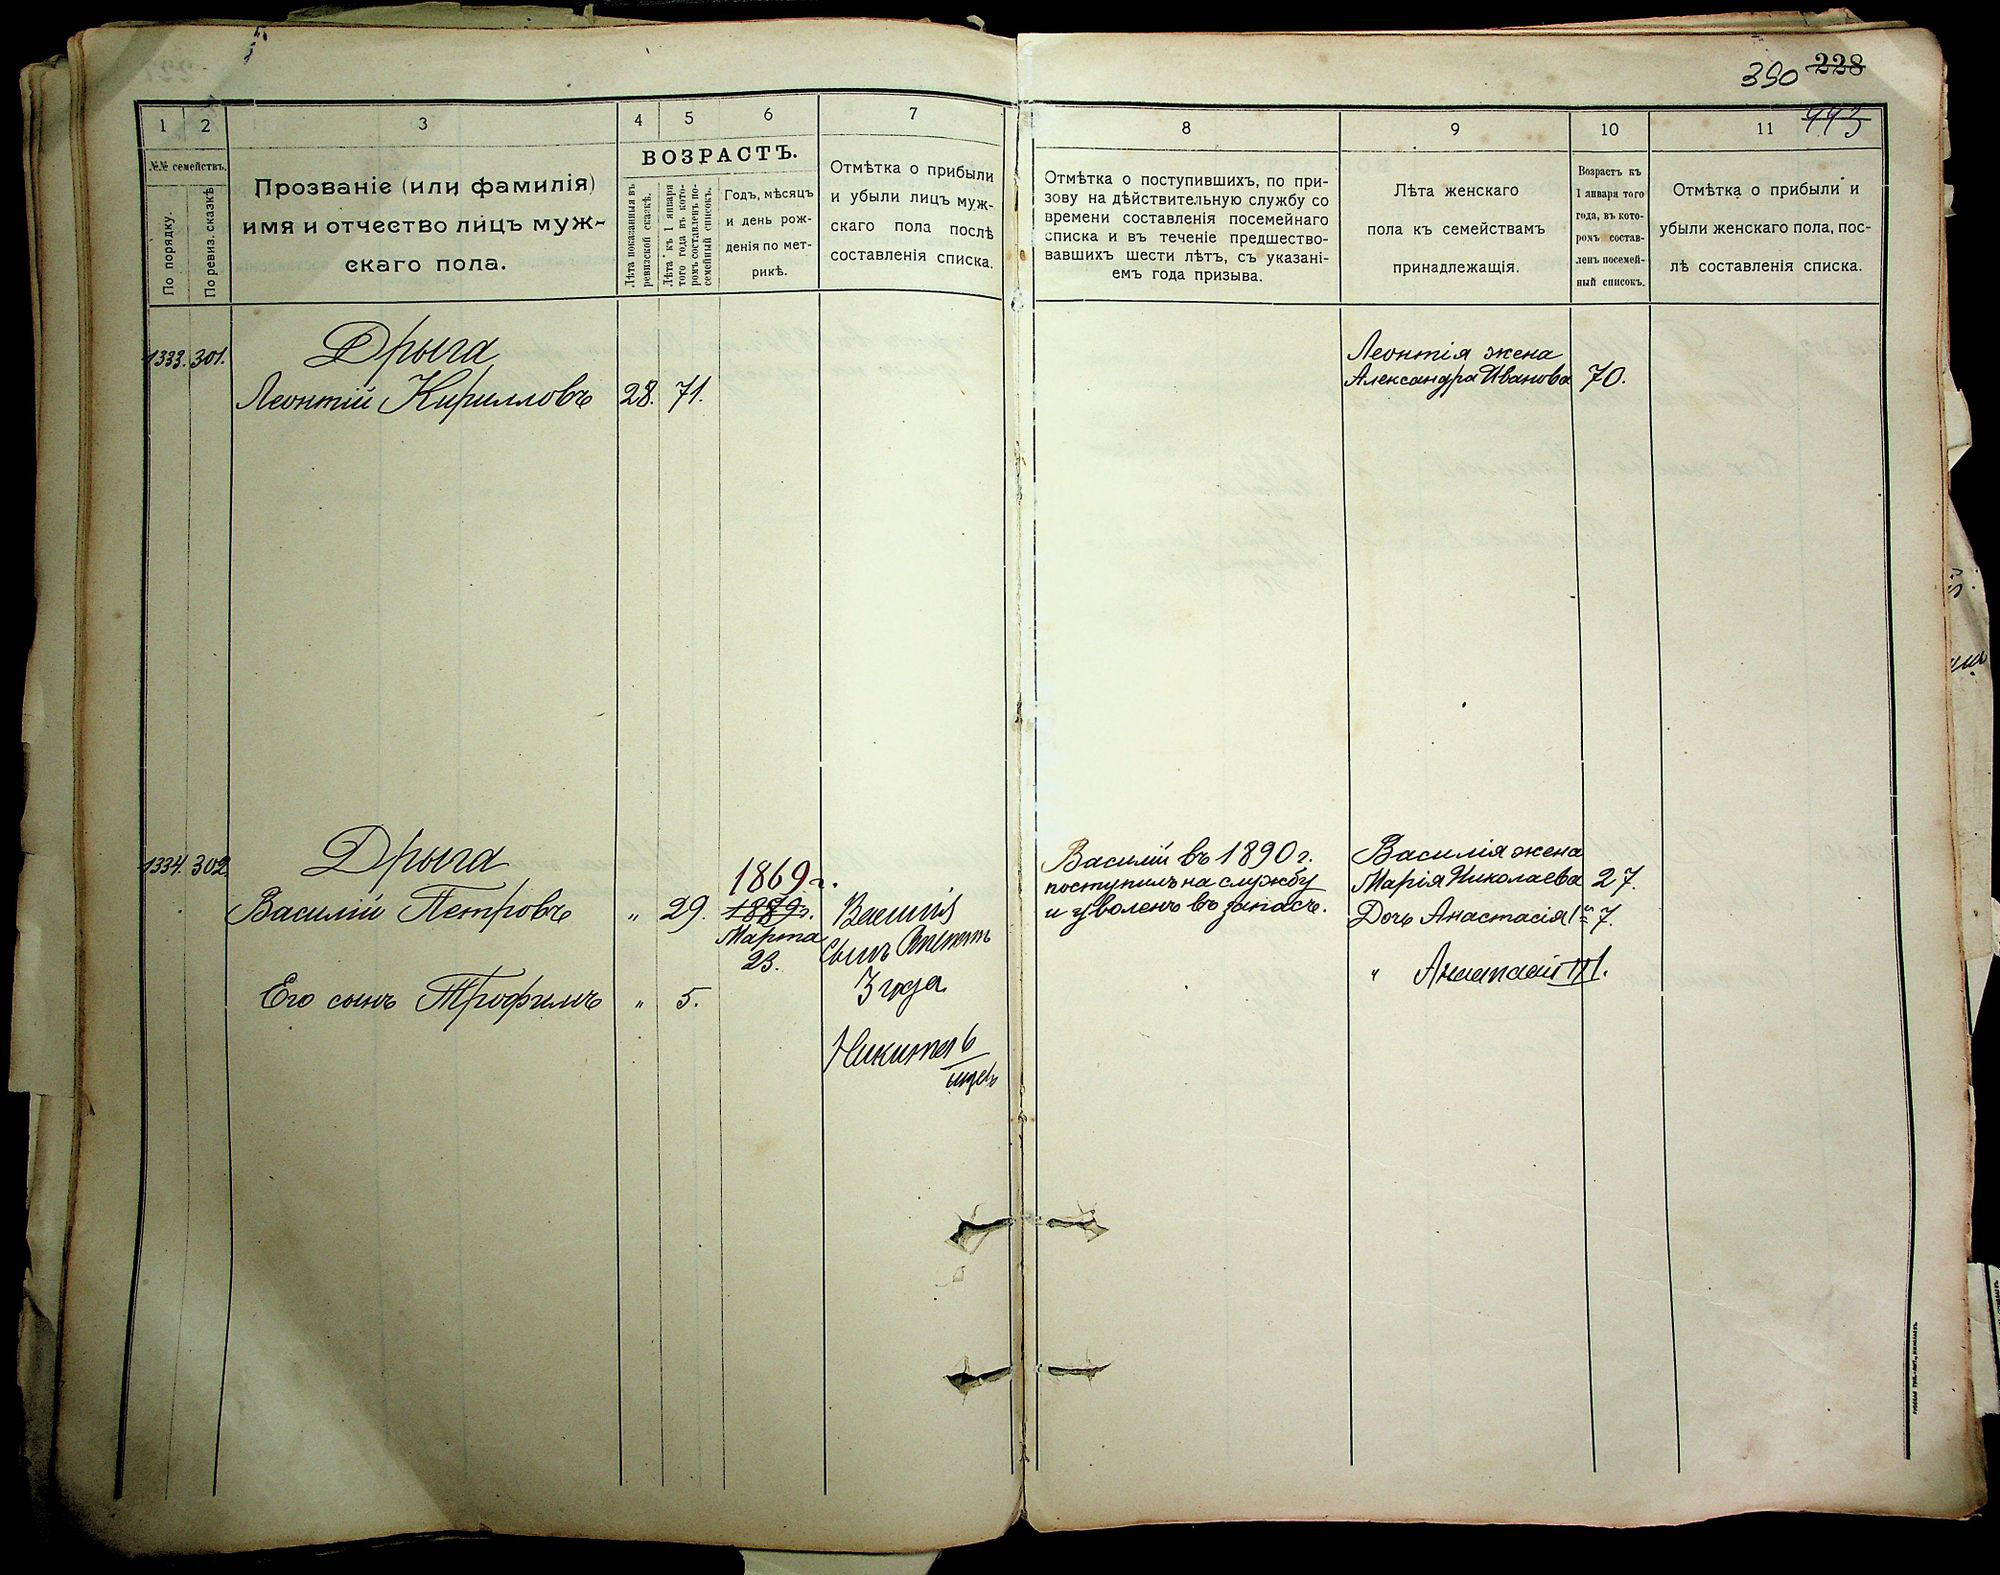 390 228
443
1 2 3 4 5 6 7
№№ семействъ.
По порядку.
По ревиз. сказкѣ
Прозваніе (или фамилія)
имя и отчество лицъ муж-
скаго пола.
ВОЗРАСТЪ.
Лѣта показанныя въ
ревизской сказкѣ.
Лѣта къ 1 января
того года въ кото-
ромъ составленъ по-
семейный списокъ.
Годъ, мѣсяцъ
и день рож-
денія по мет-
рикѣ.
Отмѣтка о прибыли
и убыли лицъ муж-
скаго пола послѣ
составленія списка.
1333. 301. Дрыга
Леонтій Кирилловъ 28. 71.
1334. 302 Дрыга
1869 г.
Василій Петровъ „ 29. 1889 г.
Марта
23.
Его сынъ Трофимъ „ 5.
Василія
Сынъ
3 года
Никита 6
8 9 10 11
Отмѣтка о поступившихъ, по при-
зову на дѣйствительную службу со
времени составленія посемейнаго
списка и въ теченіе предшество-
вавшихъ шести лѣтъ, съ указані-
емъ года призыва.
Лѣта женскаго
пола къ семействамъ
принадлежащія.
Возрастъ къ
1 января того
года, въ кото-
ромъ состав-
ленъ посемей-
ный списокъ.
Отмѣтка о прибыли и
убыли женскаго пола, пос-
лѣ составленія списка.
Леонтія жена
Александра Иванова 70.
Василій въ 1890 г.
поступилъ на службу
и уволенъ въ запасъ.
Василія жена
Марія Николаева 27.
Дочь Анастасія 1я 7.
„ Анастасія 1.